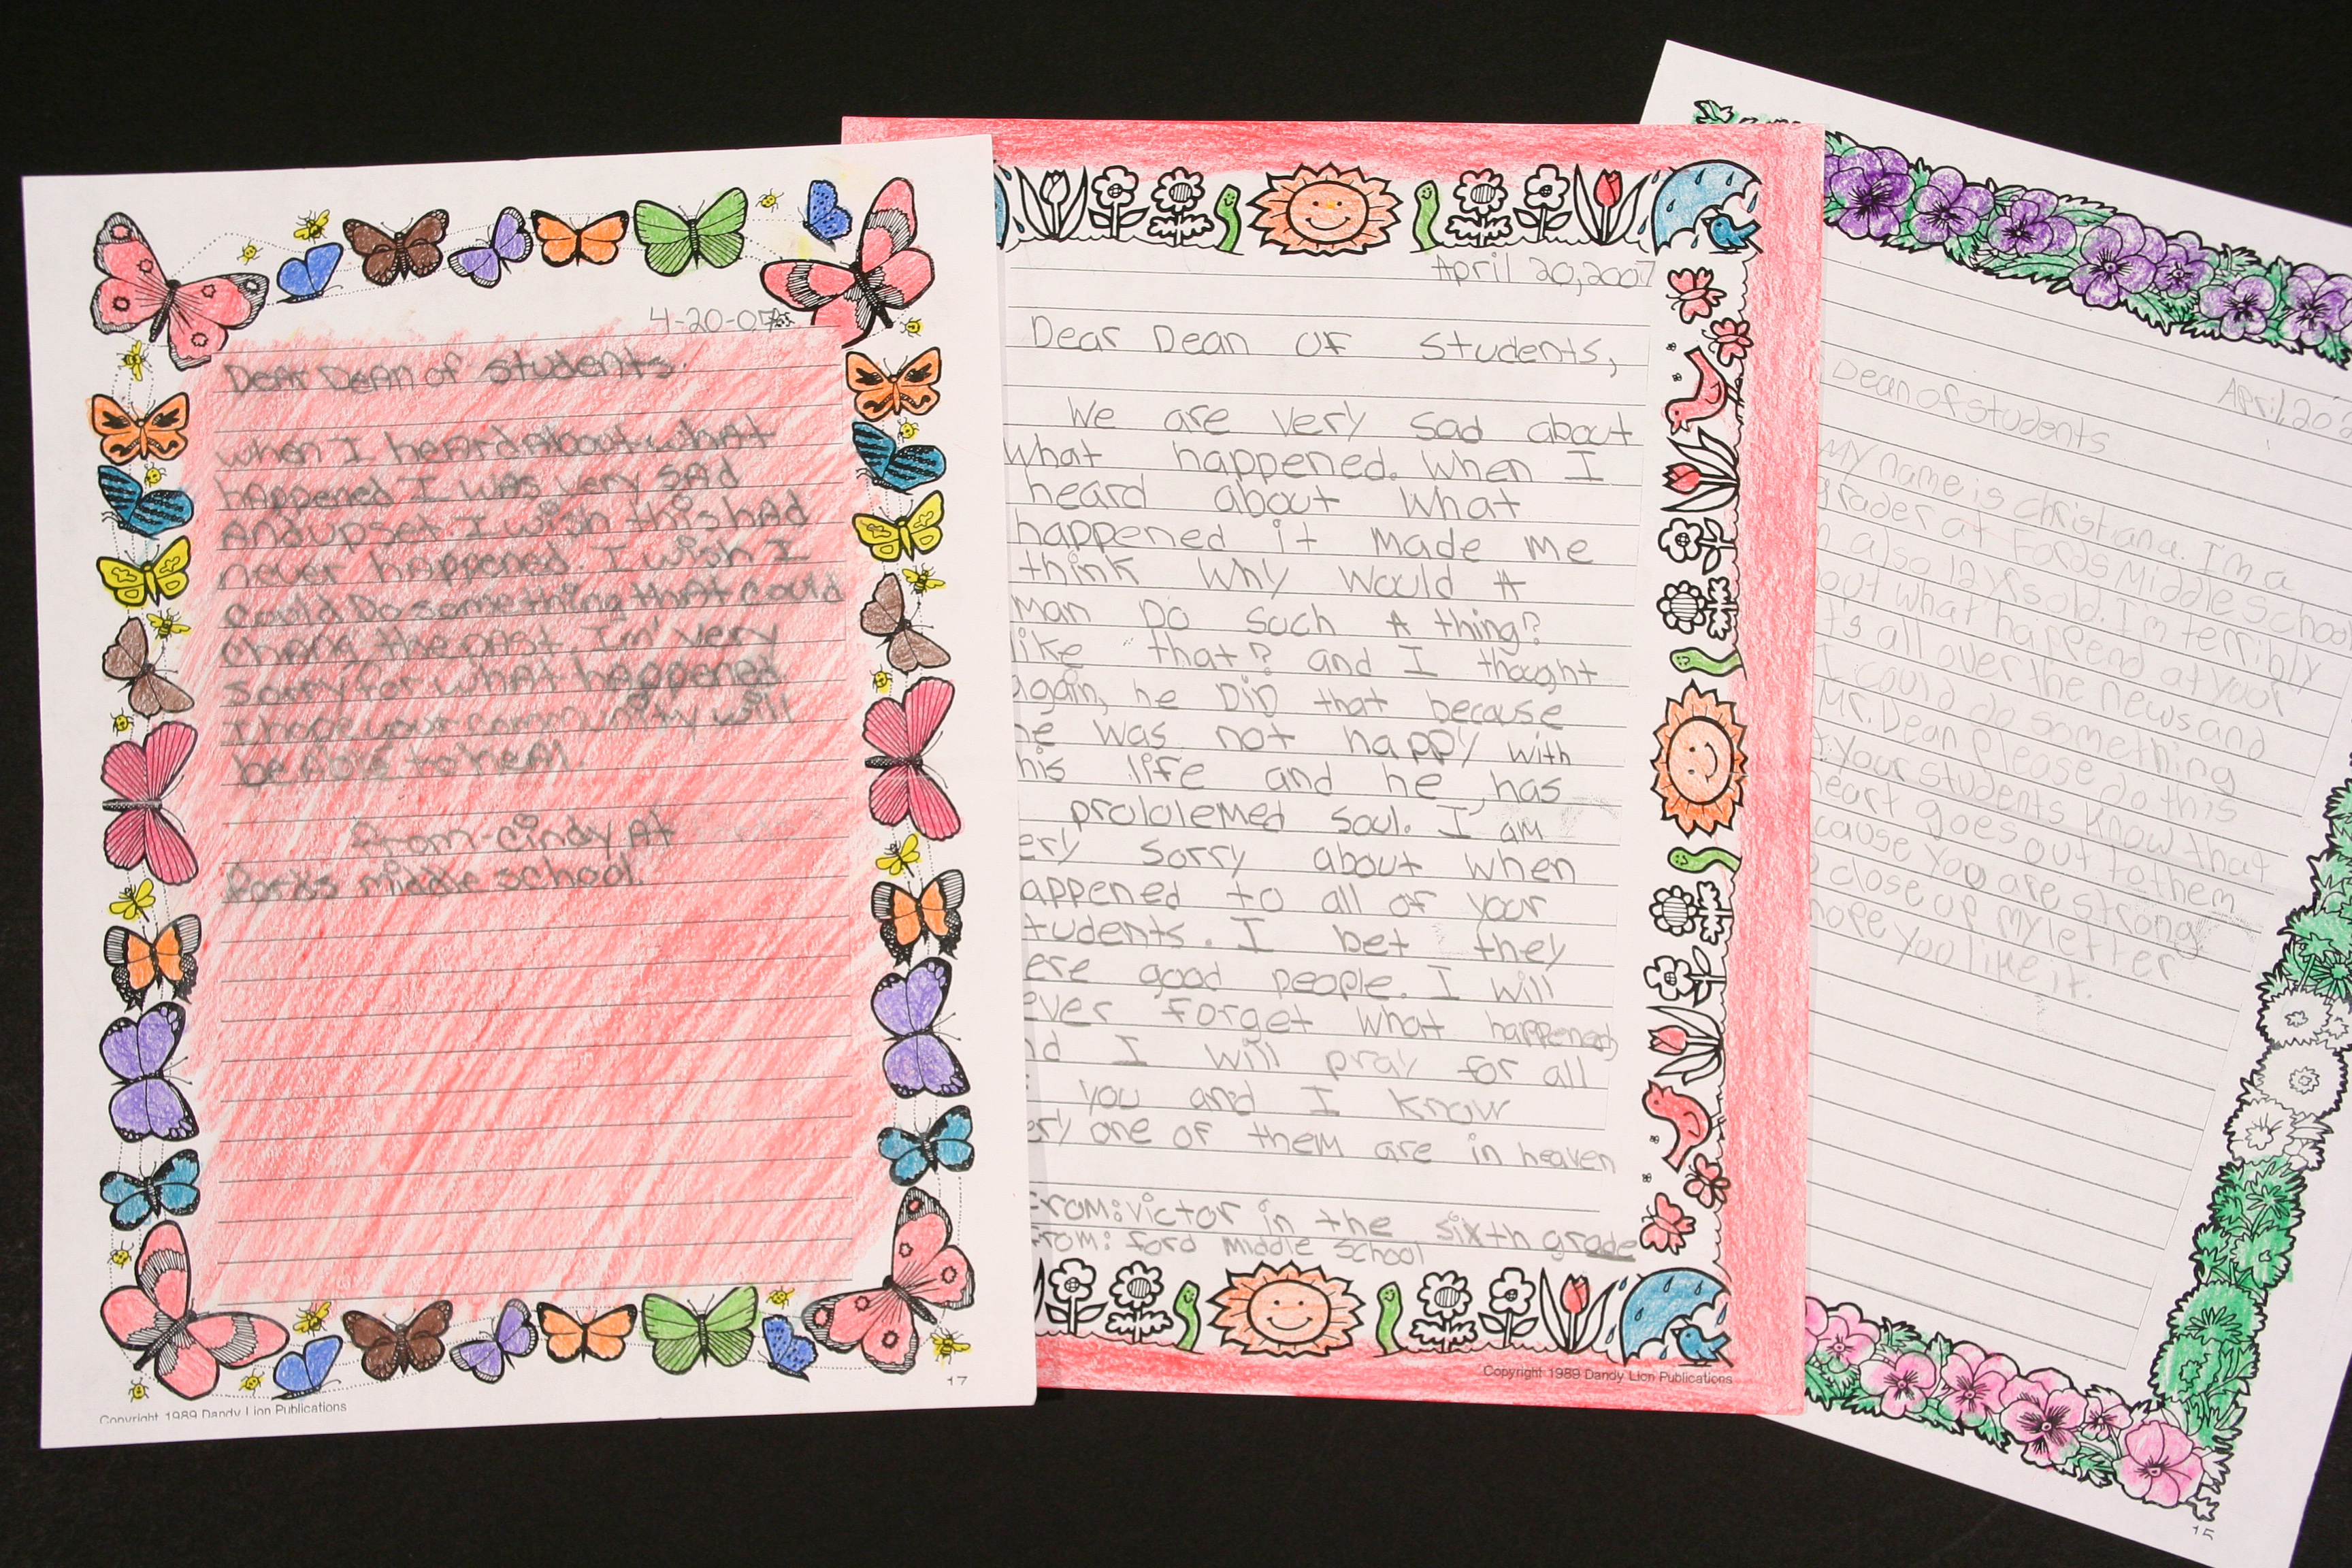 4-20-07
Dear Dean of students.
when I heard about what
happened I was very sad
And upset I wish this had
never happened. I wish I
could Do something that could
chang the past. Im' very
sorry for what happened
I hope your community will
be Able to heal.
from-cindy At
Fords middle school.
17
Copyright 1989 Dandy Lion Publications
April 20, 2007
Dear Dean OF Students,
We are very sad about
what happened. When I
heard about what
happened it made me
think why would A
man Do such A thing?
like that? and I thought
again, he DiD that because
he was not happy with
his life and he has
prololemed soul. I am
ery sorry about when
appened to all of your
tudents. I bet they
ere good people. I will
ever forget what happened
nd I will pray for all
you and I know
ery one of them are in heaven
From: victor in the sixth grade
From: ford middle school
Copyright 1989 Dandy Lion Publications
April, 20
Dean of students
My name is christiana. I'm a
grader at Fords Middle school
also 12 yrs old. I'm terribly
out what happend at your
it's all over the news and
I could do something
Mr. Dean Please do this
your students know that
heart goes out to them
cause you are strong
close up my letter
hope you like it.
15